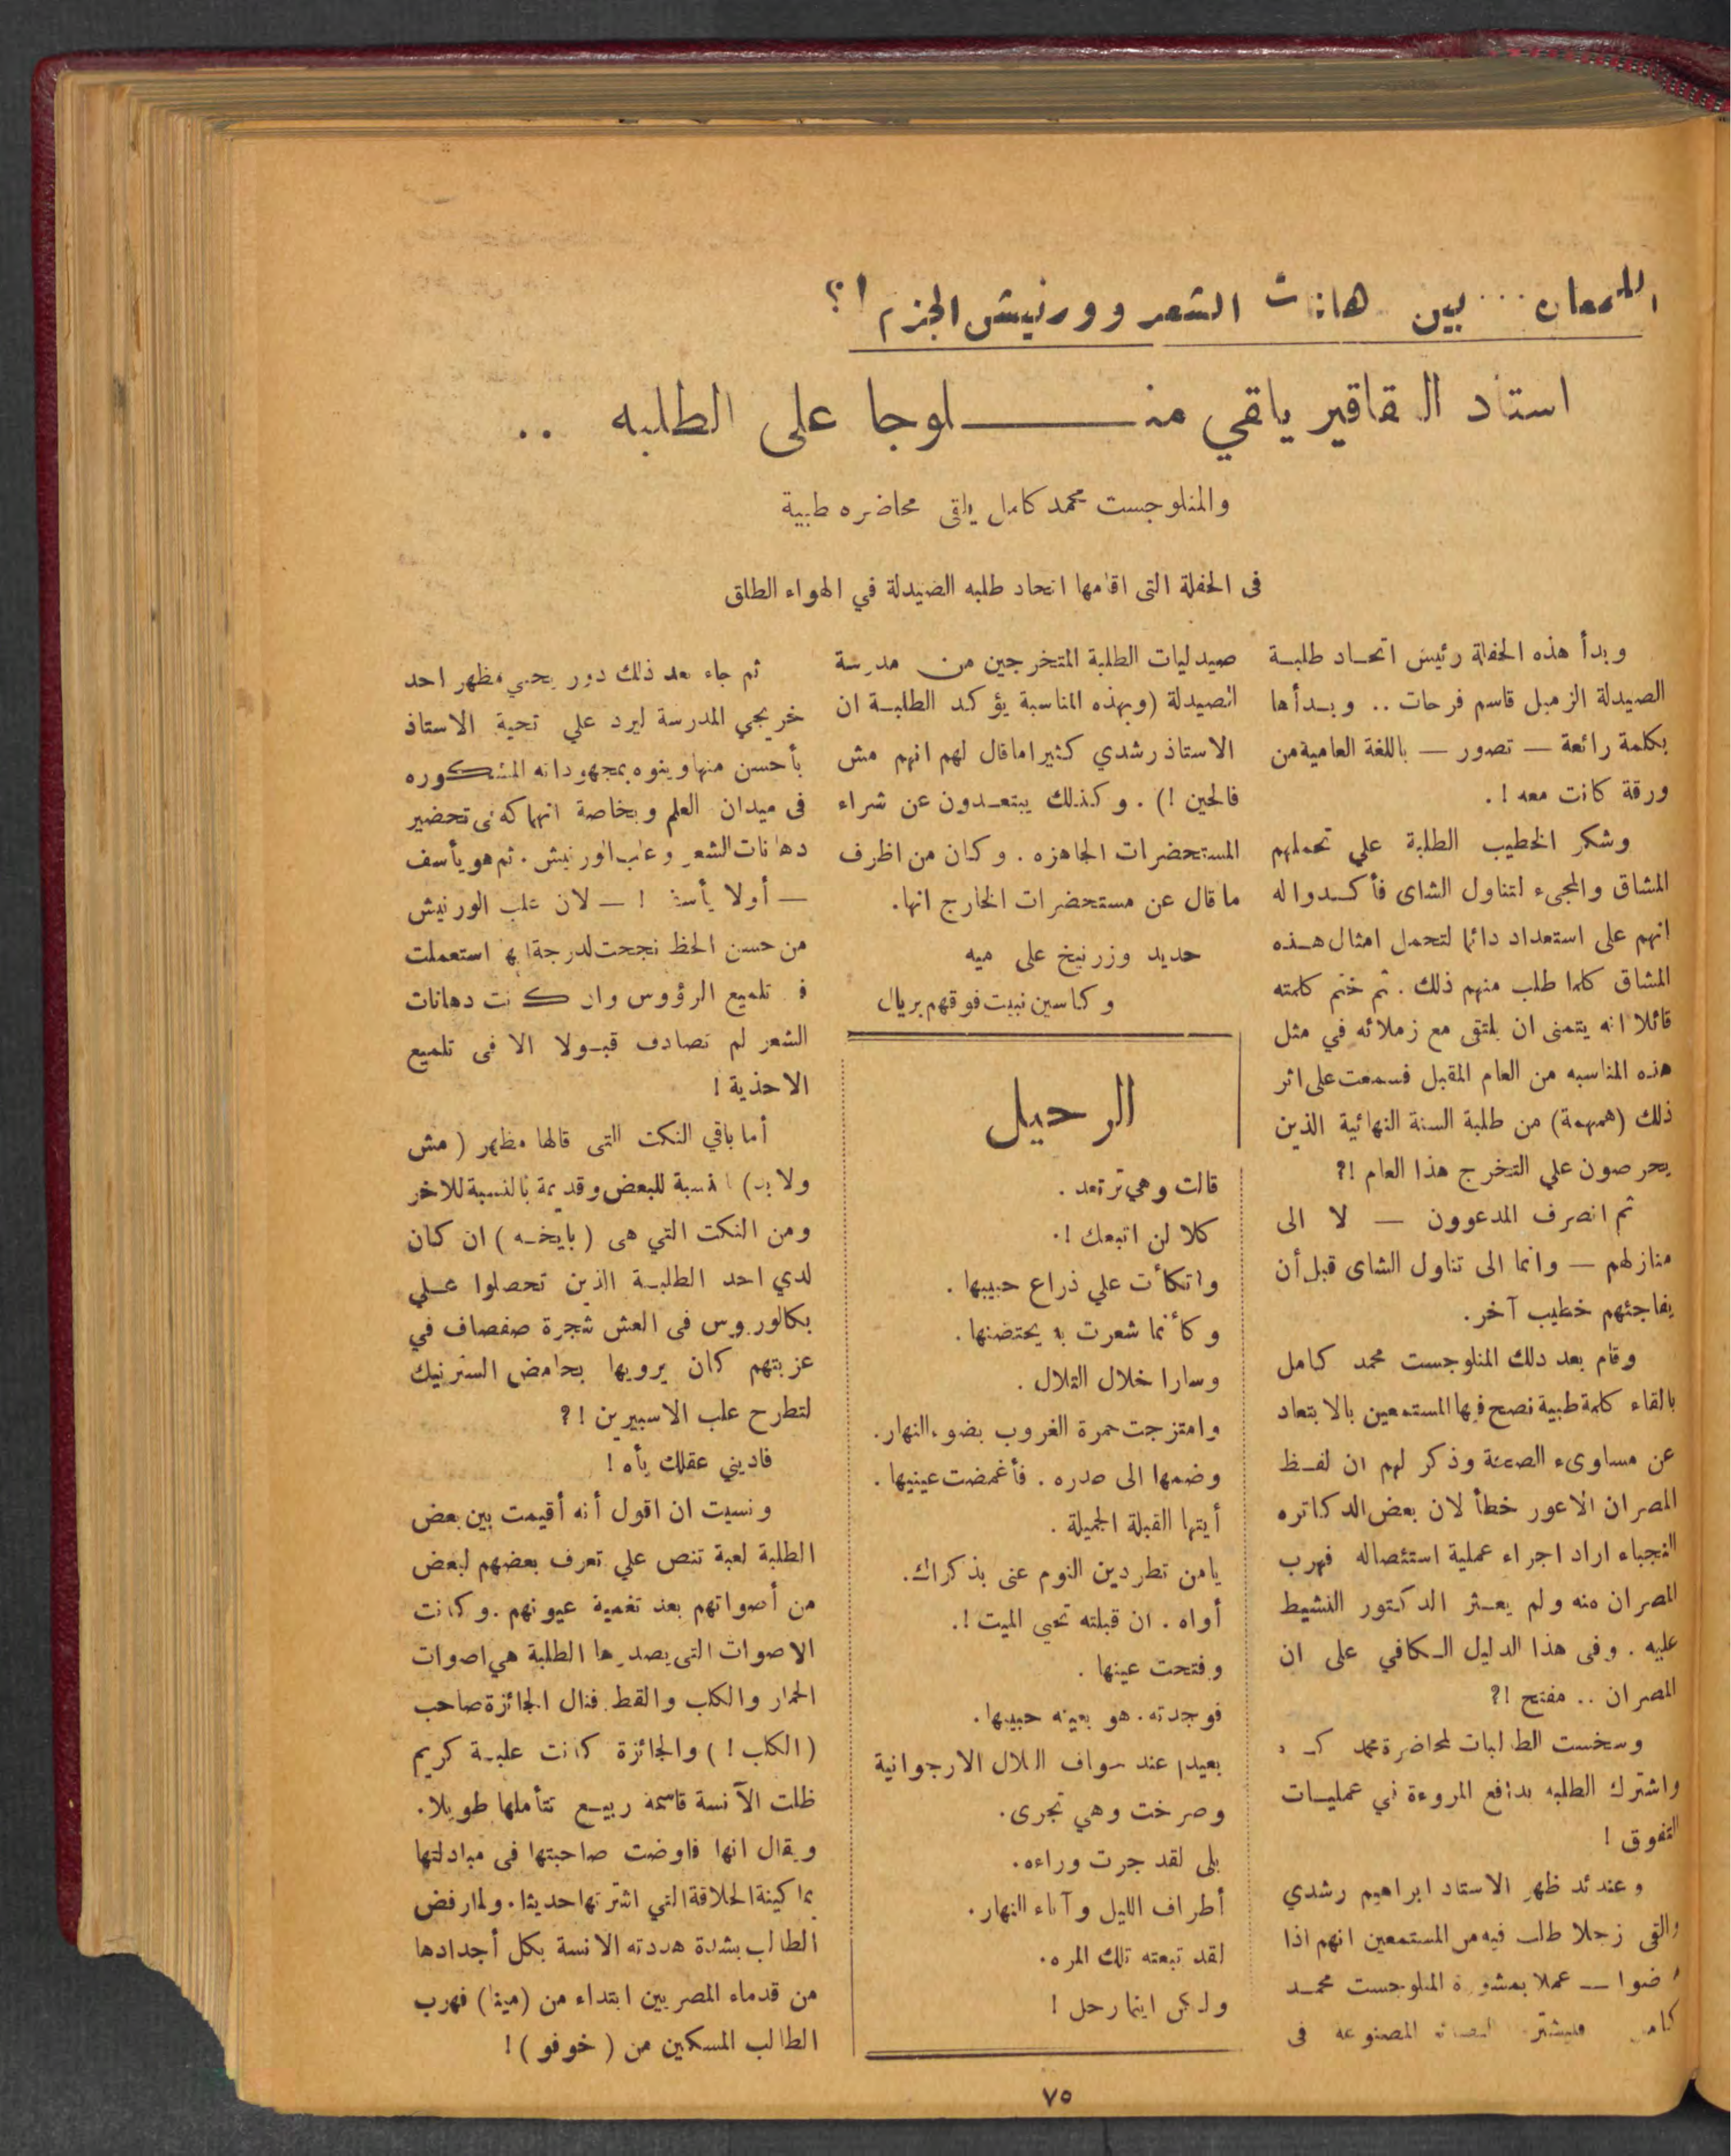 اللمعان... بين هانات الشعر وورنيش الجزم !؟
استاذ العقاقير ياقي منلوجا على الطلبه ..
والمنلوجست محمد كامل ياقى محاضره طبية
فى الحفلة التى اقامها اتحاد طلبه الصيدلة في الهواء الطلق
وبدأ هذه الحفلة رئيس اتحاد طلبة
الصيدلة الزميل قاسم فرحات .. وبدأها
بكلمة رائعة — تصور — باللغة العامية من
ورقة كانت معه ! .
وشكر الخطيب الطلبة علي تحملهم
المشاق والمجىء لتناول الشاى فأكدوا له
انهم على استعداد دائما لتحمل امثال هذه
المشاق كلما طلب منهم ذلك . ثم ختم كلمته
قائلا انه يتمنى ان يلتقى مع زملائه في مثل
هذه المناسبه من العام المقبل فسمعت على اثر
ذلك (همهمة) من طلبة السنة النهائية الذين
يحرصون علي التخرج هذا العام !؟
ثم انصرف المدعوون — لا الى
منازلهم — وانما الى تناول الشاى قبل أن
يفاجئهم خطيب آخر .
وقام بعد دلك المنلوجست محمد كامل
بالقاء كلمة طبية نصح فيها المستمعين بالابتعاد
عن مساوىء الصحة وذكر لهم ان لفظ
المصران الاعور خطأ لان بعض الدكاتره
النجباء اراد اجراء عملية استئصاله فهرب
المصران منه ولم يعثر الدكتور النشيط
عليه . وفى هذا الدليل الكافي على ان
المصران .. مفتح !؟
وسخست الطالبات لمحاضرة محمد
واشترك الطلبه بدافع المروءة في عمليات
التفوق !
وعندئد ظهر الاستاد ابراهيم رشدي
والقى زجلا طلب فيه من المستمعين انهم اذا
— عملا بمشورة المنلوجست محمد
المصنوعه فى
صيدليات الطلبة المتخرجين من مدرسة
الصيدلة (وبهذه المناسبة يؤكد الطلبة ان
الاستاذ رشدي كثيرا ماقال لهم انهم مش
فالحين !) . وكذلك يبتعدون عن شراء
المستحضرات الجاهزه . وكان من اظرف
ماقال عن مستحضرات الخارج انها.
حديد وزرنيخ على ميه
وكاسين نبيت فوقهم بريال
الرحيل
قالت وهي ترتعد .
كلا لن اتبعك !.
واتكأت علي ذراع حبيبها .
وكأنما شعرت به يحتضنها .
وسارا خلال التلال .
وامتزجت حمرة الغروب بضوء النهار.
وضمها الى صدره . فأغمضت عينيها .
أيتها القبلة الجميلة .
يامن تطردين النوم عنى بذكراك.
أواه . ان قبلته تحيى الميت !.
وفتحت عينها .
فوجدته. هو بعينه حبيبها.
بعيدا عند الارجوانية
وصرخت وهي تجرى.
بلى لقد جرت وراءه.
أطراف الليل وآناء النهار.
لقد تبعته تلك المره.
ولكن اينما رحل !
ثم جاء بعد ذلك دور يحيي مظهر احد
خريجي المدرسة ليرد علي تحية الاستاذ
بأحسن منها وينوه بمجهوداته المشكوره
فى ميدان العلم وبخاصة انهماكه فى تحضير
دهانات الشعر وعلب الورنيش . ثم هو يأسف
— أولا يأسف ! — لان علب الورنيش
من حسن الحظ نجحت لدرجة انها استعملت
فى تلميع الرؤوس وان كانت دهانات
الشعر لم تصادف قبولا الا فى تلميع
الاحذية !
أما باقي النكت التى قالها مظهر (مش
ولابد) بالنسبة للبعض وقديمة بالنسبة للاخر
ومن النكت التي هى (بايخه) ان كان
لدي احد الطلبة الذين تحصلوا علي
بكالوريوس فى العش شجرة صفصاف في
عزبتهم كان يرويها بحامض الستر نيك
لتطرح علب الاسبيرين !؟
فاديني عقلك بأه !
ونسيت ان اقول أنه أقيمت بين بعض
الطلبة لعبة تنص علي تعرف بعضهم لبعض
من أصواتهم بعد تغمية عيونهم . وكانت
الاصوات التى يصدرها الطلبة هي اصوات
الحمار والكلب والقط. فنال الجائزة صاحب
(الكلب !) والجائزة كانت علبة كريم
ظلت الآنسة قاسمه ربيع تتأملها طويلا.
ويقال انها فاوضت صاحبتها فى مبادلتها
بماكينة الحلاقة التي اشترتها حديثا. ولما رفض
الطالب بشدة هددته الانسة بكل أجدادها
من قدماء المصريين ابتداء من (مينا) فهرب
الطالب المسكين من (خوفو) !
٧٥